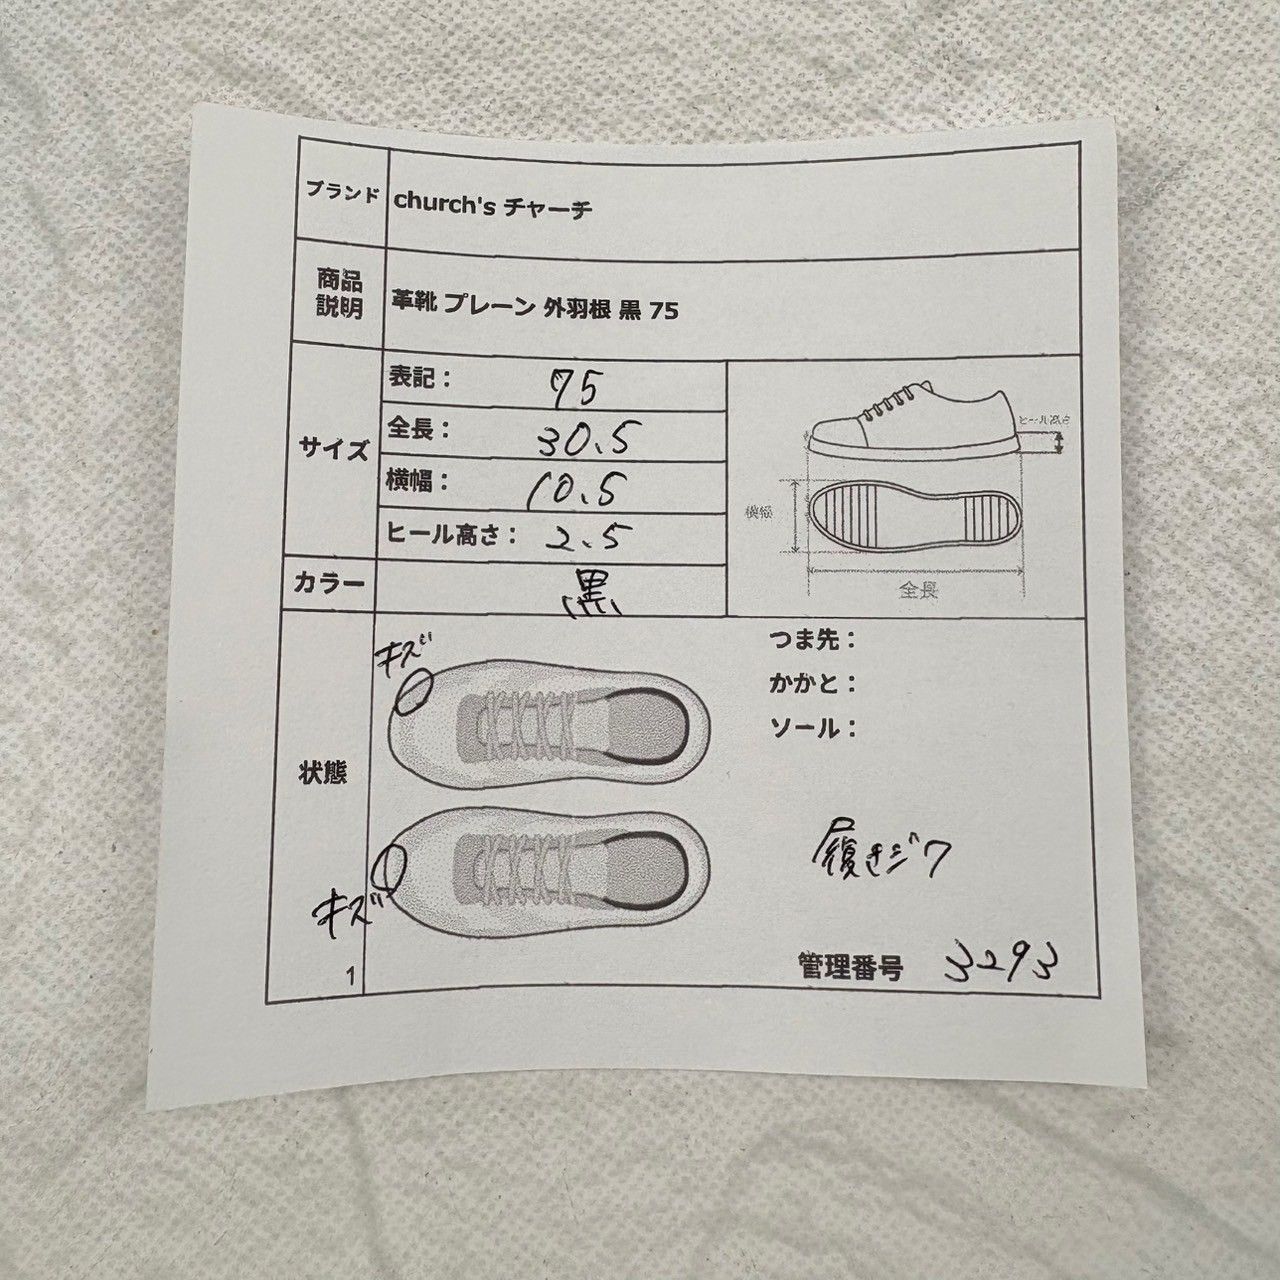 ブランド church's チャーチ
商品
説明
革靴 プレーン 外羽根 黒 75
サイズ
表記： 75
全長： 30.5
横幅： 10.5
ヒール高さ： 2.5
ヒール高さ
横幅
全長
カラー 黒
状態
キズ
キズ
つま先：
かかと：
ソール：
履きジワ
管理番号 3293
1